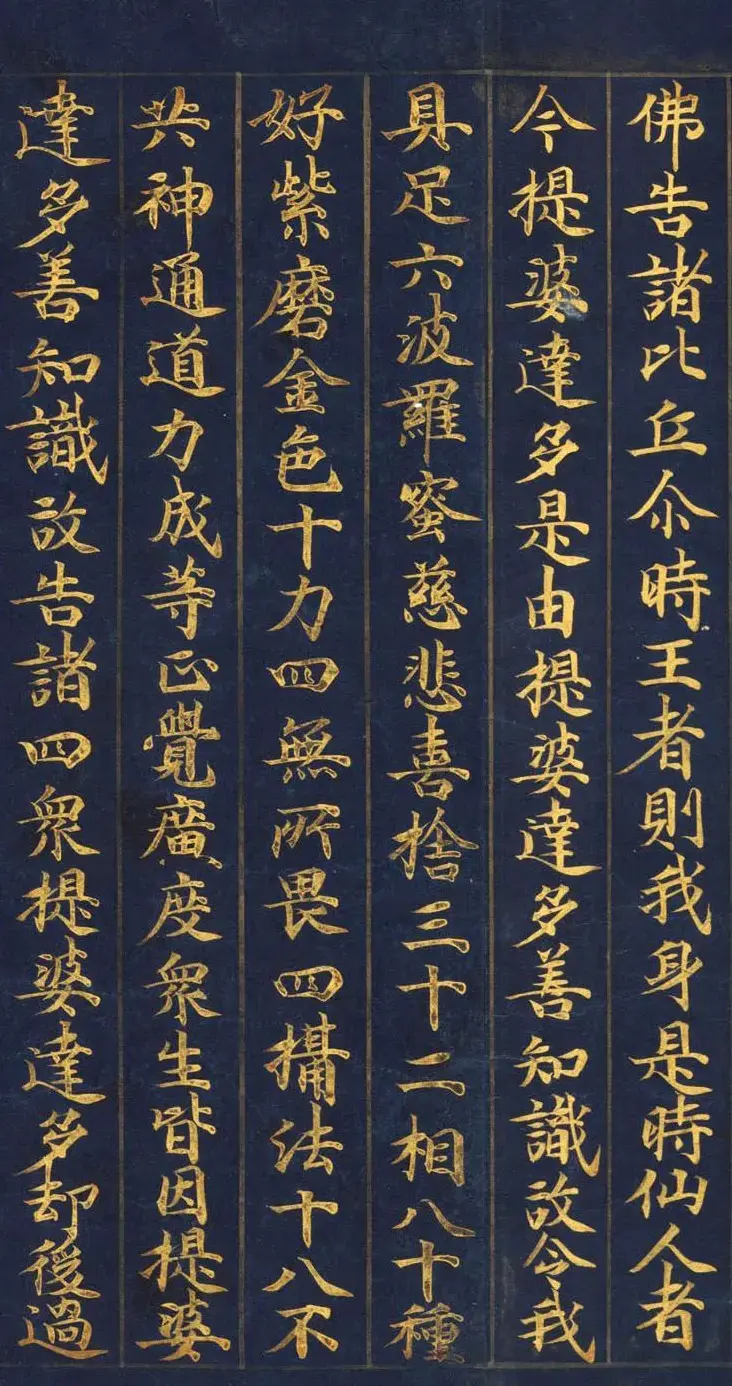 佛告諸比丘尒時王者則我身是時仙人者
今提婆達多是由提婆達多善知識故令我
具足六波羅蜜慈悲喜捨三十二相八十種
好紫磨金色十力四無所畏四攝法十八不
共神通道力成等正覺廣度衆生皆因提婆
達多善知識故告諸四衆提婆達多却後過